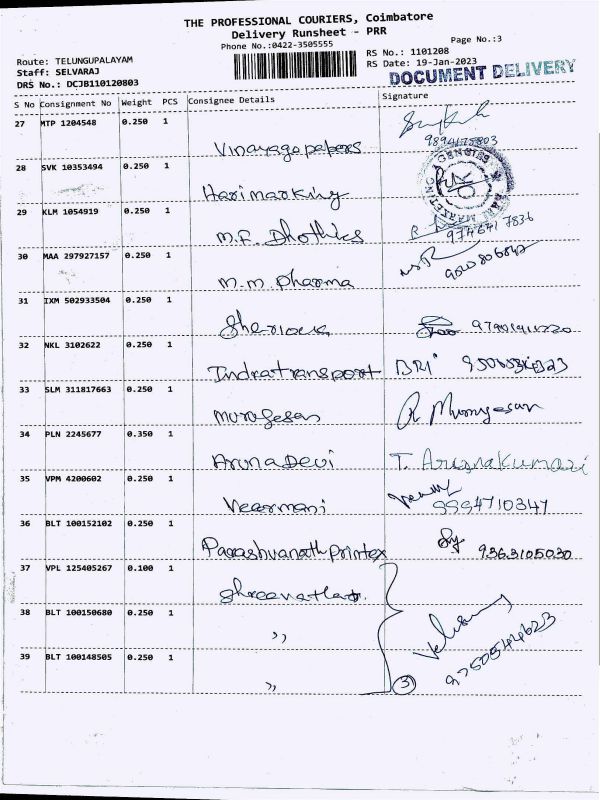 THE PROFESSIONAL COURIERS, Coimbatore
Delivery Runsheet - PRR
Phone No.:0422-3505555
Page No.:3
Route: TELUNGUPALAYAM
RS No.: 1101208
Staff: SELVARAJ
RS Date: 19-Jan-2023
DRS No.: DCJB110120803
DOCUMENT DELIVERY
S No Consignment No Weight PCS Consignee Details Signature
27 MTP 1204548 0.250 1
9894175803
Vinayaga papers
28 SVK 10353494 0.250 1
Hari marking
29 KLM 1054919 0.250 1
M.F. Dhothies
30 MAA 297927157 0.250 1
M.M Pharma
31 IXM 502933504 0.250 1
32 NKL 3102622 0.250 1
Indra transport
33 SLM 311817663 0.250 1
Murugesan R Murugesan
34 PLN 2245677 0.350 1
Aruna Devi T.
35 VPM 4200602 0.250 1
Veermani 9994710347
36 BLT 100152102 0.250 1
Paarashvanath Printex 9363105030
37 VPL 125405267 0.100 1
38 BLT 100150680 0.250 1
,,
39 BLT 100148505 0.250 1
,,
3
9750544623